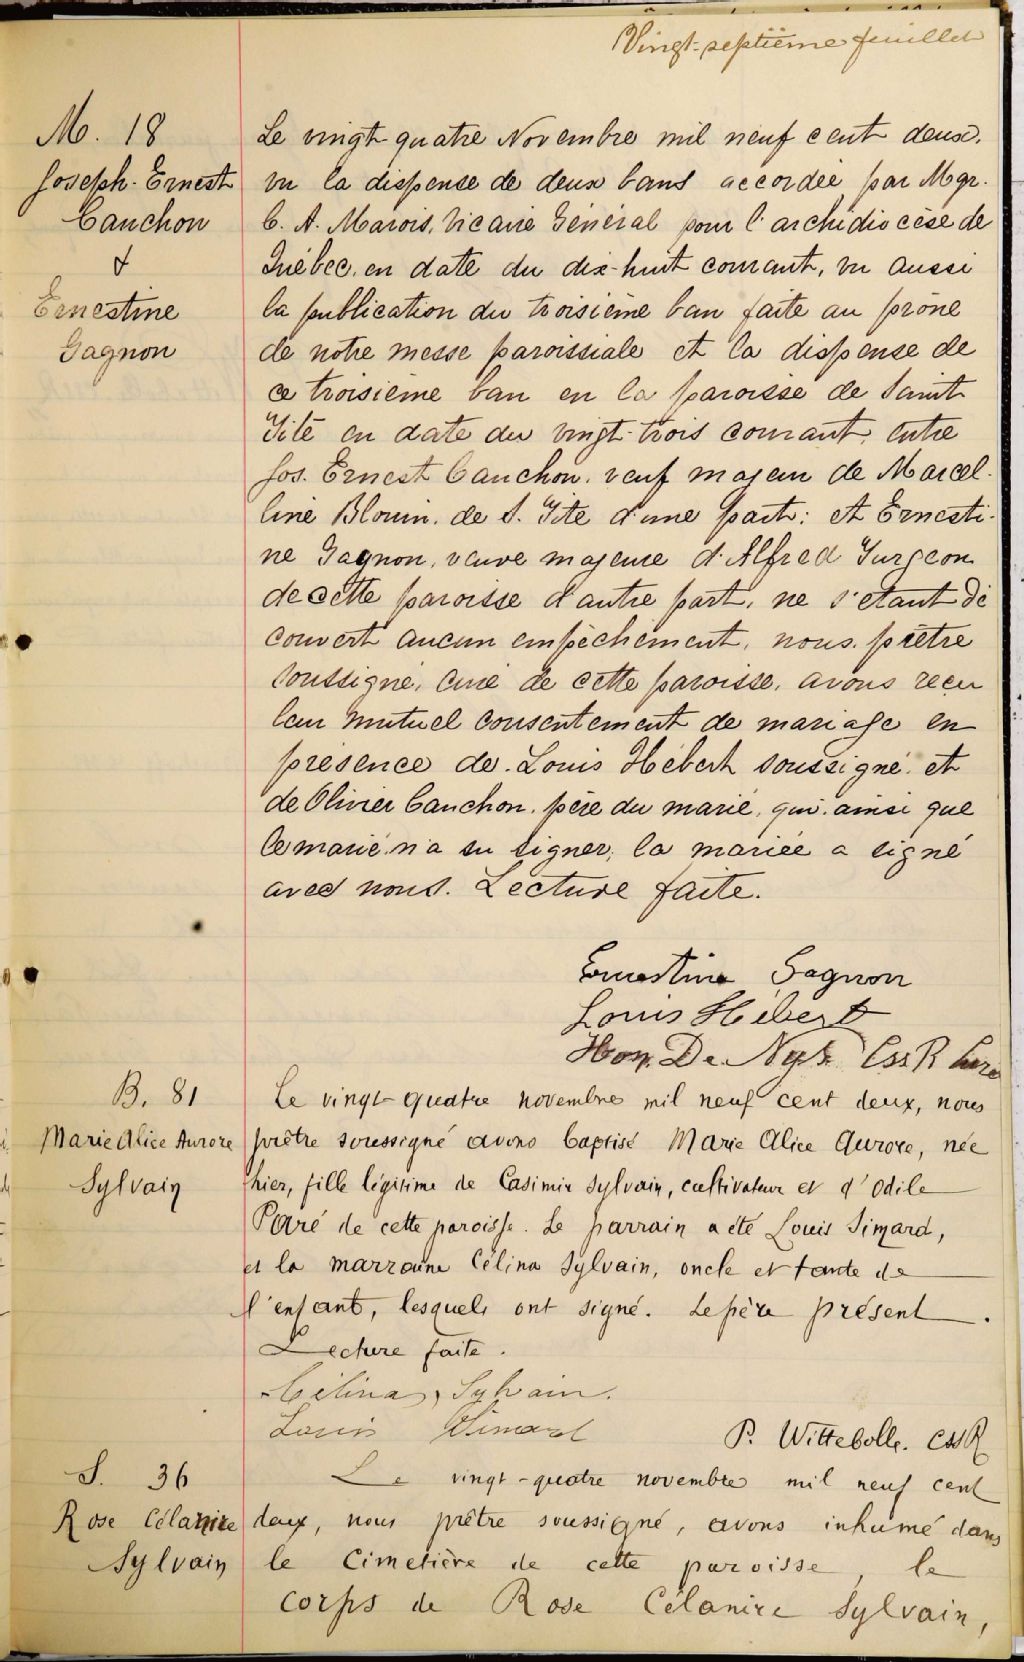 Vingt-septième feuillet
M. 18
Joseph-Ernest
Cauchon
&
Ernestine
Gagnon
Le vingt quatre Novembre mil neuf cent deux,
vu la dispense de deux bans accordée par Mgr.
C. A. Marois, Vicaire Général pour l'archidiocèse de
Québec, en date du dix-huit courant, vu aussi
la publication du troisième ban faite au prône
de notre messe paroissiale et la dispense de
ce troisième ban en la paroisse de Saint
Tite en date du vingt-trois courant, entre
Jos. Ernest Cauchon, veuf majeur de Marcel-
line Blouin, de S. Tite d'une part: et Ernesti-
ne Gagnon, veuve majeure d'Alfred Turgeon
de cette paroisse d'autre part, ne s'étant dé
couvert aucun empêchement, nous, prêtre
soussigné, curé de cette paroisse, avons reçu
leur mutuel consentement de mariage en
présence de Louis Hébert soussigné et
de Olivier Cauchon, père du marié, qui, ainsi que
le marié n'a su signer, la mariée a signé
avec nous. Lecture faite.
Ernestine Gagnon
Louis Hébert
Hon. De Nys CssR Curé
B. 81
Marie Alice Aurore
Sylvain
Le vingt-quatre novembre mil neuf cent deux, nous
prêtre soussigné avons baptisé Marie Alice Aurore, née
hier, fille légitime de Casimir Sylvain, cultivateur et d'Odile
Paré de cette paroisse. Le parrain a été Louis Simard,
et la marraine Célina Sylvain, oncle et tante de
l'enfant, lesquels ont signé. Le père présent.
Lecture faite.
Célina Sylvain.
Louis Simard
P. Wittebolle. CssR
S. 36
Rose Célanire
Sylvain
Le vingt-quatre novembre mil neuf cent
deux, nous prêtre soussigné, avons inhumé dans
le Cimetière de cette paroisse, le
corps de Rose Célanire Sylvain,